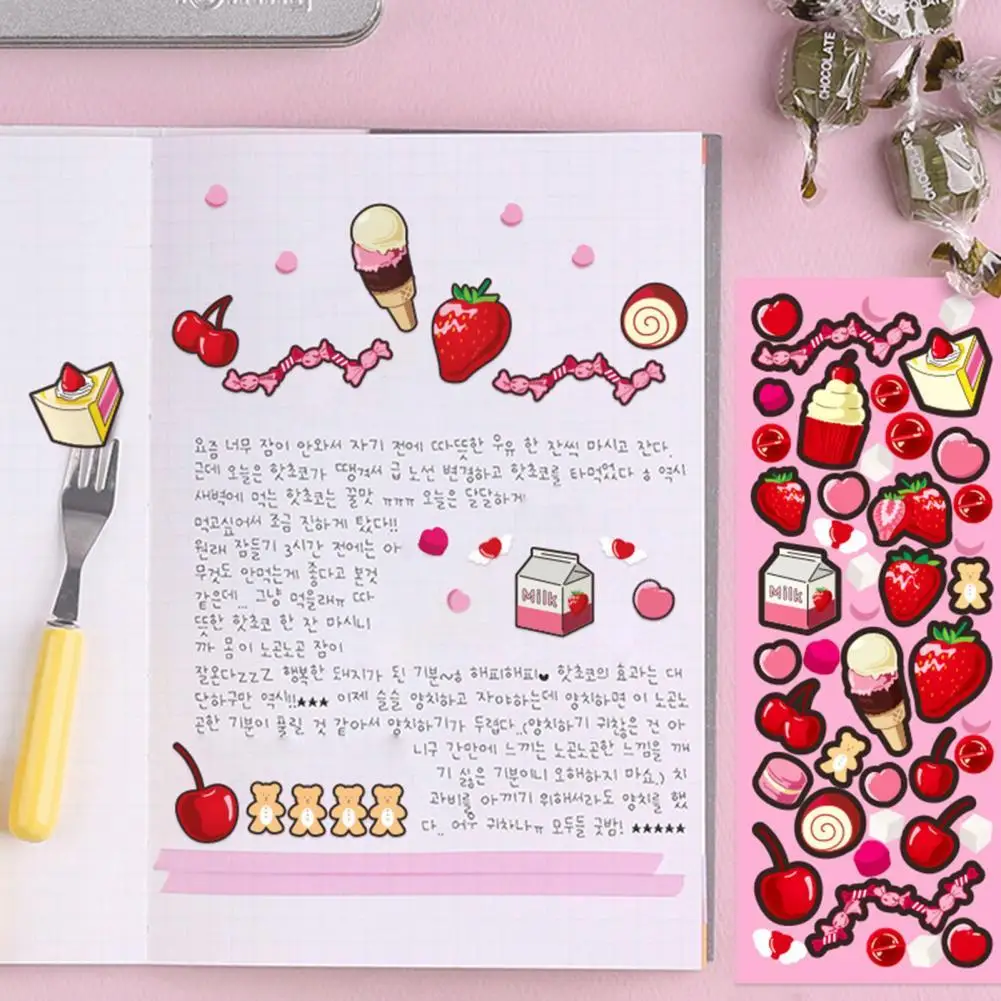 CHOCOLATE
CHOCOLATE
CHOCO
요즘 너무 잠이 안와서 자기 전에 따뜻한 우유 한 잔씩 마시고 잔다.
근데 오늘은 핫초코가 땡겨서 급 노선 변경하고 핫초코를 타먹었다 역시
새벽에 먹는 핫초코는 꿀맛 ㅠㅠㅠ 오늘은 달달하게
먹고싶어서 조금 진하게 탔다!!
원래 잠들기 3시간 전에는 아
무것도 안먹는게 좋다고 본것
같은데... 그냥 먹을래ㅠ 따
뜻한 핫초코 한 잔 마시니
까 몸이 노곤노곤 잠이
잘온다zzZ 행복한 돼지가 된 기분~ 해피해피♥ 핫초코의 효과는 대
단하구만 역시!!★★★ 이제 슬슬 양치하고 자야하는데 양치하면 이 노곤노
곤한 기분이 풀릴 것 같아서 양치하기가 두렵다..(양치하기 귀찮은 건 아
니구 간만에 느끼는 노곤노곤한 느낌을 깨
기 싫은 기분이니 오해하지 마쇼.) 치
과비를 아끼기 위해서라도 양치를 했
다.. 어우 귀차나ㅠ 모두들 굿밤! ★★★★★
Milk
Milk